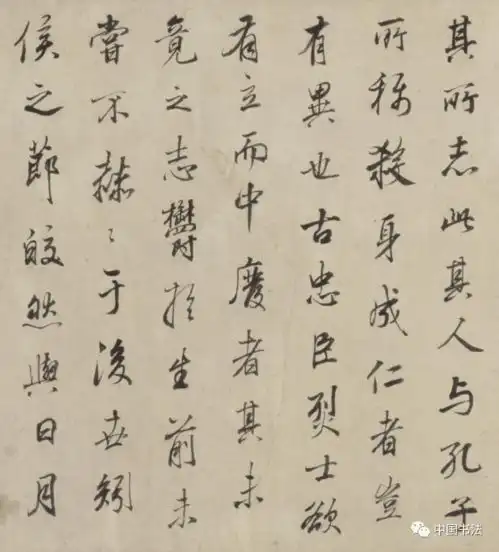 其所志此其人与孔子
所称殺身成仁者豈
有異也古忠臣烈士欲
有立而中廢者其未
竟之志鬱於生前未
嘗不赫〻于後世矧
侯之節皎然與日月
中国书法